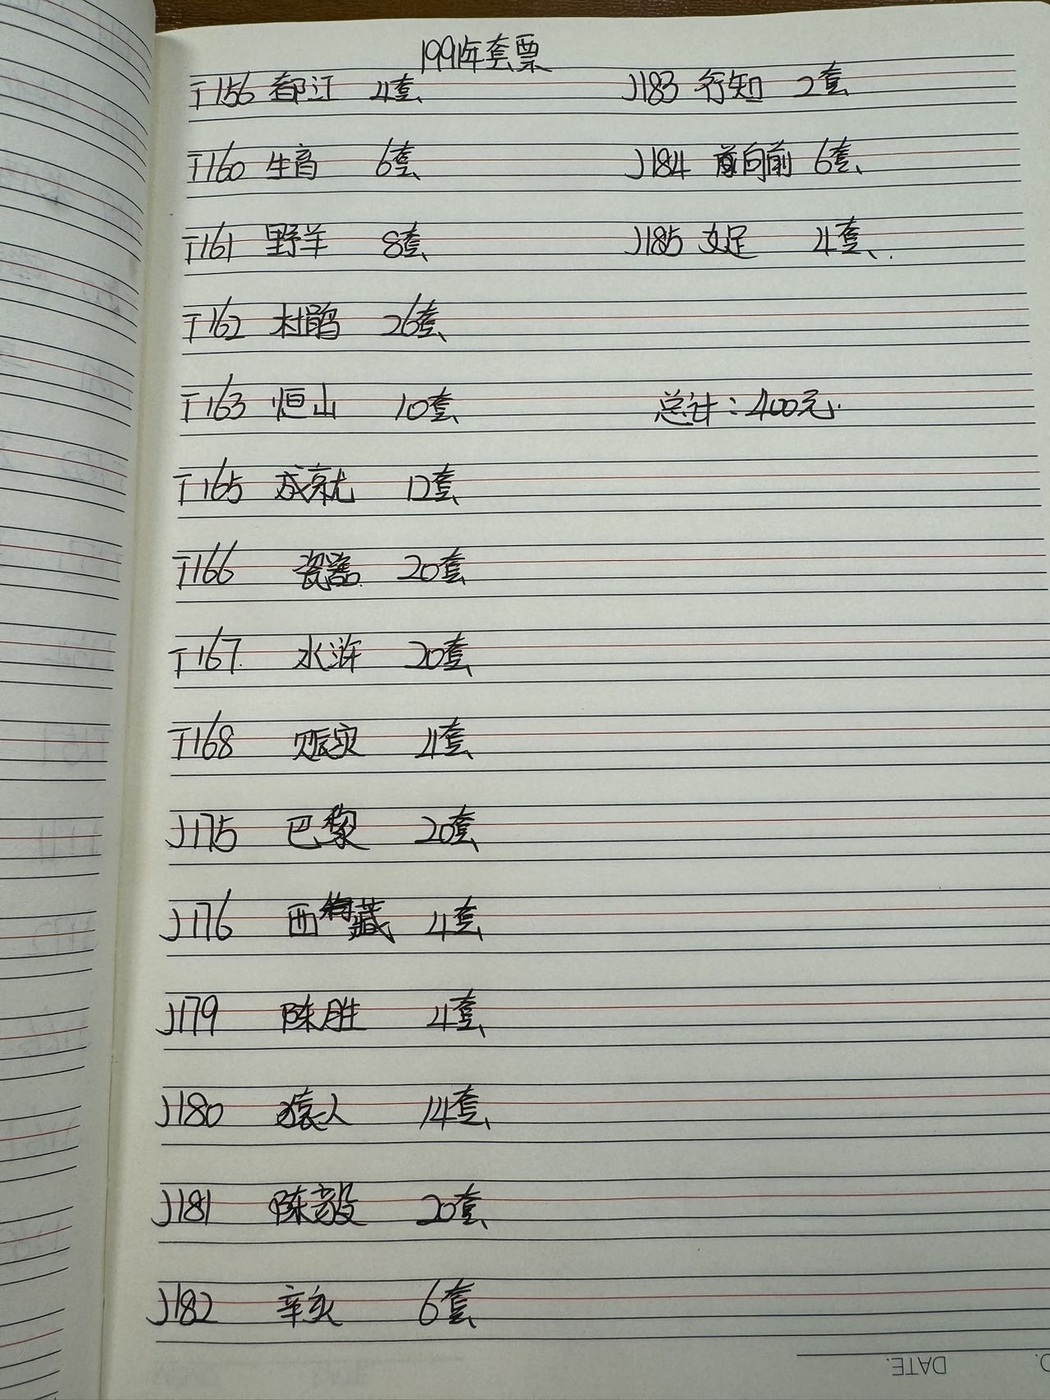 1991年套票
T156 都江 4套
T160 生肖 6套
T161 野羊 8套
T162 杜鹃 26套
T163 恒山 10套
T165 成就 12套
T166 瓷器 20套
T167. 水浒 20套
T168 赈灾 4套
J175 巴黎 20套
J176 西藏 4套
J179 陈胜 4套
J180 猿人 14套
J181 陈毅 20套
J182 辛亥 6套
J183 行知 2套
J184 向前 6套
J185 女足 4套
总计：400元.
DATE.